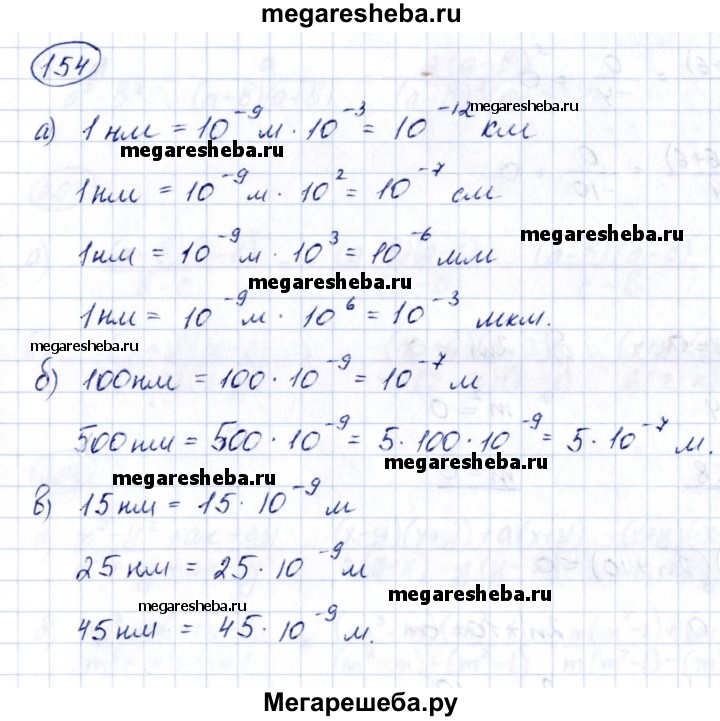 megaresheba.ru
154
а) 1 нм = 10⁻⁹ м · 10⁻³ = 10⁻¹² км
megaresheba.ru
megaresheba.ru
1 нм = 10⁻⁹ м · 10² = 10⁻⁷ см
megaresheba.ru
1 нм = 10⁻⁹ м · 10³ = 10⁻⁶ мм
megaresheba.ru
1 нм = 10⁻⁹ м · 10⁶ = 10⁻³ мкм.
megaresheba.ru
б) 100 нм = 100 · 10⁻⁹ = 10⁻⁷ м
500 нм = 500 · 10⁻⁹ = 5 · 100 · 10⁻⁹ = 5 · 10⁻⁷ м.
megaresheba.ru
megaresheba.ru
в) 15 нм = 15 · 10⁻⁹ м
25 нм = 25 · 10⁻⁹ м
megaresheba.ru
megaresheba.ru
45 нм = 45 · 10⁻⁹ м.
Мегарешеба.ру